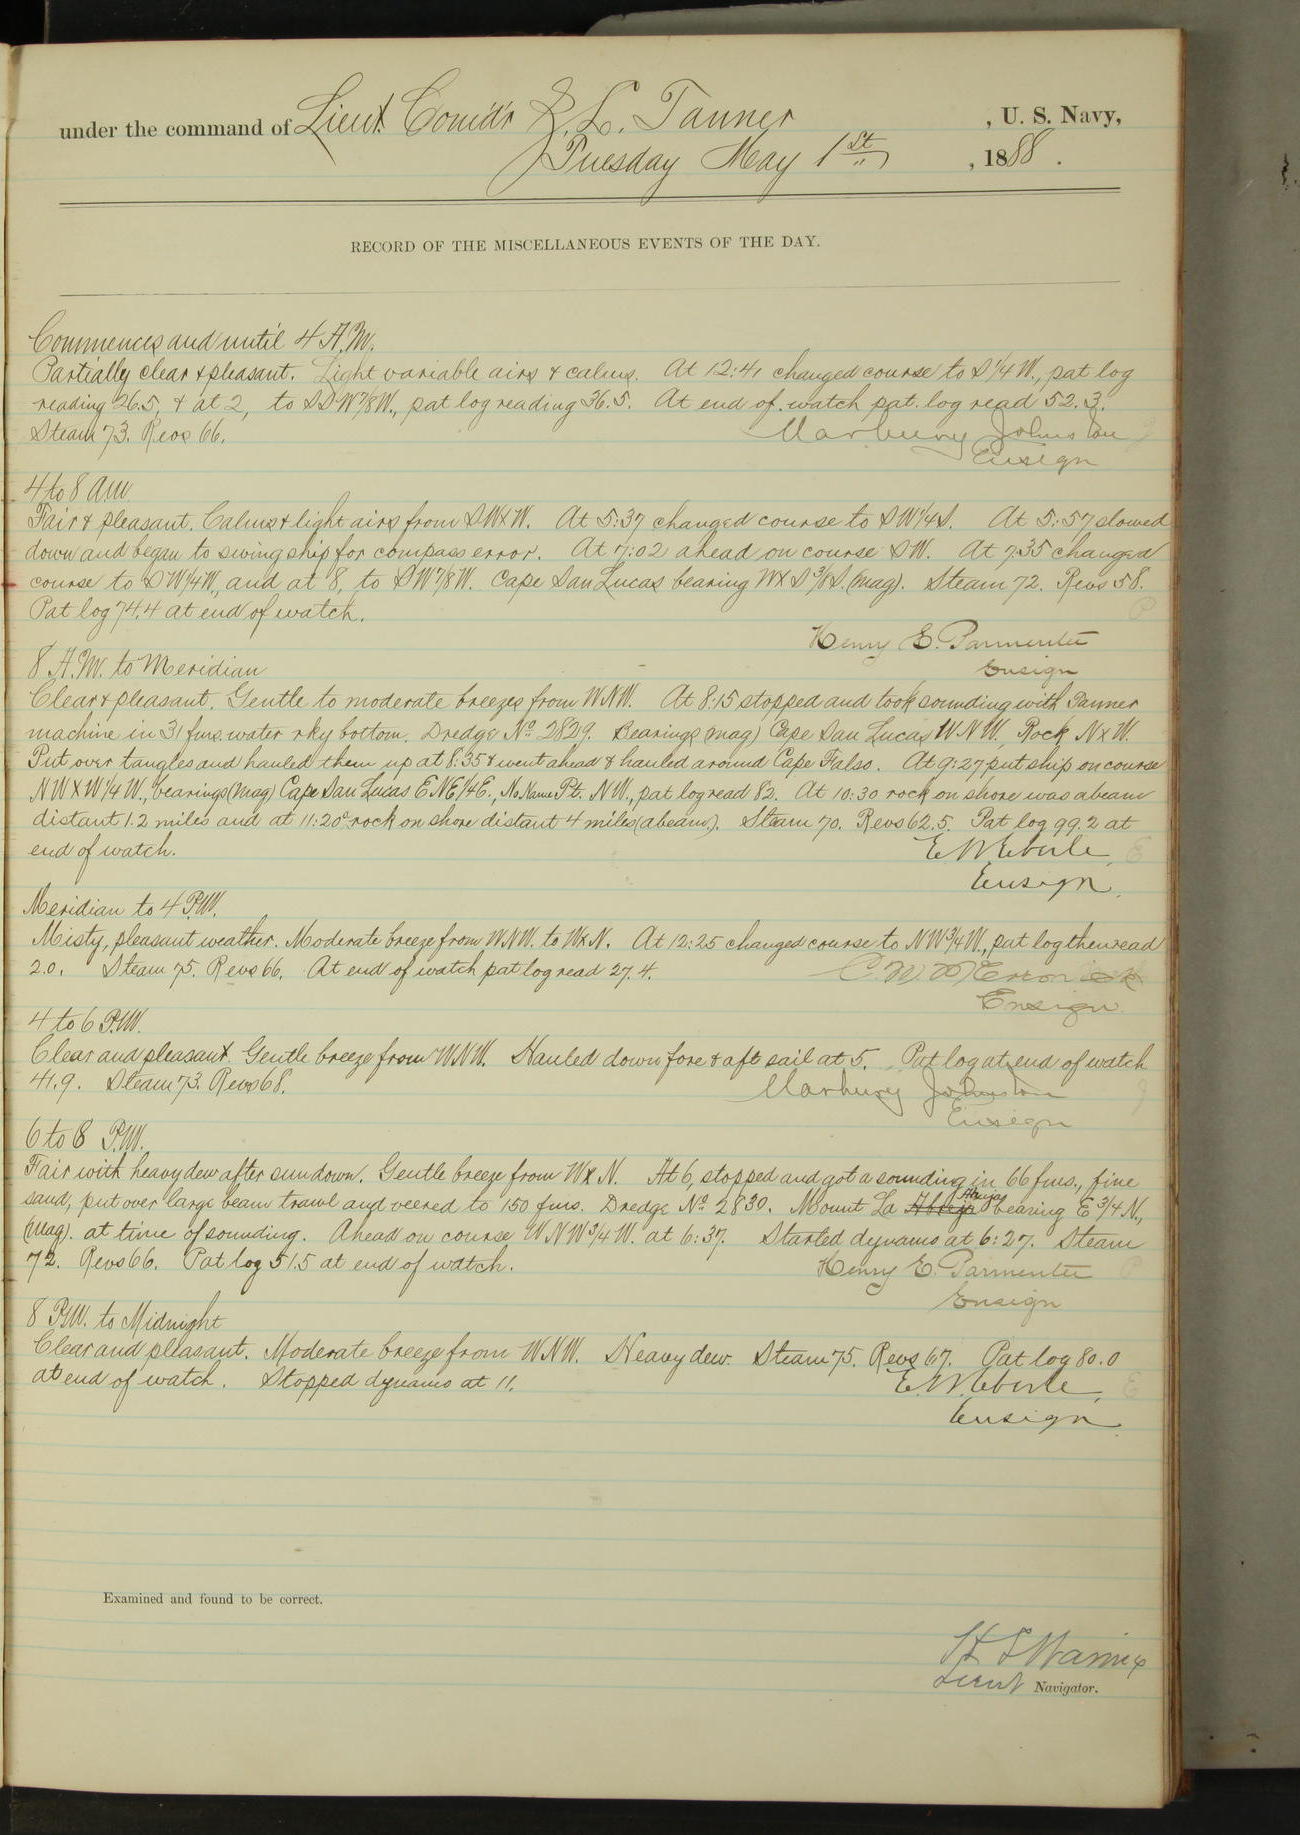 under the command of Lieut. Comd'r Z. L. Tanner, U. S. Navy,
Tuesday May 1st, 1888.
RECORD OF THE MISCELLANEOUS EVENTS OF THE DAY.
Commences and until 4 A.M.
Partially clear & pleasant. Light variable airs & calms. At 12:41 changed course to S 1/4 W., pat log
reading 26.5, & at 2, to SSW 7/8 W., pat log reading 36.5. At end of watch pat. log read 52.3.
Steam 73. Revs 66. Marbury Johnston
Ensign
4 to 8 A.M.
Fair & pleasant. Calms & light airs from SWxW. At 5:37 changed course to SW 1/4 S. At 5:57 slowed
down and began to swing ship for compass error. At 7:02 ahead on course SW. At 7:35 changed
course to SW 1/4 W., and at 8, to SW 7/8 W. Cape San Lucas bearing WxS 3/8 S. (mag). Steam 72. Revs 58.
Pat log 74.4 at end of watch.
Henry E. Parmenter
Ensign
8 A.M. to Meridian
Clear & pleasant. Gentle to moderate breezes from WNW. At 8:15 stopped and took sounding with Tanner
machine in 31 fms. water rky bottom. Dredge No. 2829. Bearings (mag) Cape San Lucas WNW., Rock NxW.
Put over tangles and hauled them up at 8:35 & went ahead & hauled around Cape Falso. At 9:27 put ship on course
NWxW 1/4 W., bearings (mag) Cape San Lucas ENE 1/4 E., No Name Pt. NW., pat log read 82. At 10:30 rock on shore was abeam
distant 1.2 miles and at 11:20 rock on shore distant 4 miles (abeam). Steam 70. Revs 62.5. Pat log 99.2 at
end of watch. E. W. Eberle,
Ensign.
Meridian to 4 P.M.
Misty, pleasant weather. Moderate breeze from WNW. to WxN. At 12:25 changed course to NW 3/4 W., pat log then read
2.0. Steam 75. Revs 66. At end of watch pat log read 27.4.
Ensign.
4 to 6 P.M.
Clear and pleasant. Gentle breeze from WNW. Hauled down fore & aft sail at 5. Pat log at end of watch
41.9. Steam 73. Revs 68. Marbury Johnston
Ensign
6 to 8 P.M.
Fair with heavy dew after sundown. Gentle breeze from WxN. At 6, stopped and got a sounding in 66 fms., fine
sand, put over large beam trawl and veered to 150 fms. Dredge No. 2830. Mount La Abuja bearing E 3/4 N.,
(mag). at time of sounding. Ahead on course WNW 3/4 W. at 6:37. Started dynamo at 6:27. Steam
72. Revs 66. Pat log 51.5 at end of watch. Henry E. Parmenter
Ensign
8 P.M. to Midnight
Clear and pleasant. Moderate breeze from WNW. Heavy dew. Steam 75. Revs 67. Pat log 80.0
at end of watch. Stopped dynamo at 11. E. W. Eberle,
Ensign.
Examined and found to be correct.
Lieut Navigator.